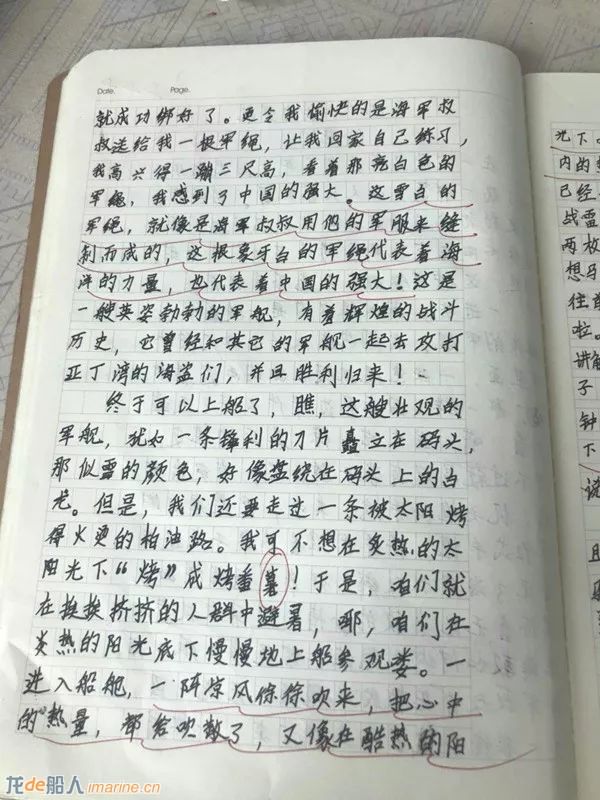 Date.
Page.
就成功绑好了。更令我愉快的是海军叔
叔送给我一根军绳，让我回家自己练习，
我高兴得一蹦三尺高，看着那亮白色的
军绳，我感到了中国的强大。这雪白的
军绳，就像是海军叔叔用他的军服来缝
制而成的，这根象牙白的军绳代表着海
洋的力量，也代表着中国的强大！这是
一艘英姿勃勃的军舰，有着辉煌的战斗
历史，它曾经和其它的军舰一起去攻打
亚丁湾的海盗们，并且胜利归来！
终于可以上船了，瞧，这艘壮观的
军舰，犹如一条锋利的刀片矗立在码头，
那似雪的颜色，好像盘绕在码头上的白
龙。但是，我们还要走过一条被太阳烤
得火烫的柏油路。我可不想在炙热的太
阳光下“烤”成烤番薯！于是，咱们就
在挨挨挤挤的人群中避暑，哪，咱们在
炎热的阳光底下慢慢地上船参观娄。一
进入船舱，一阵凉风徐徐吹来，把心中
的“热量，都给吹散了，又像在酷热的阳
光下
内的
已经
战雷
两枚
想马
往
啦。
讲解
子
钟
下
龙de船人 imarine.cn